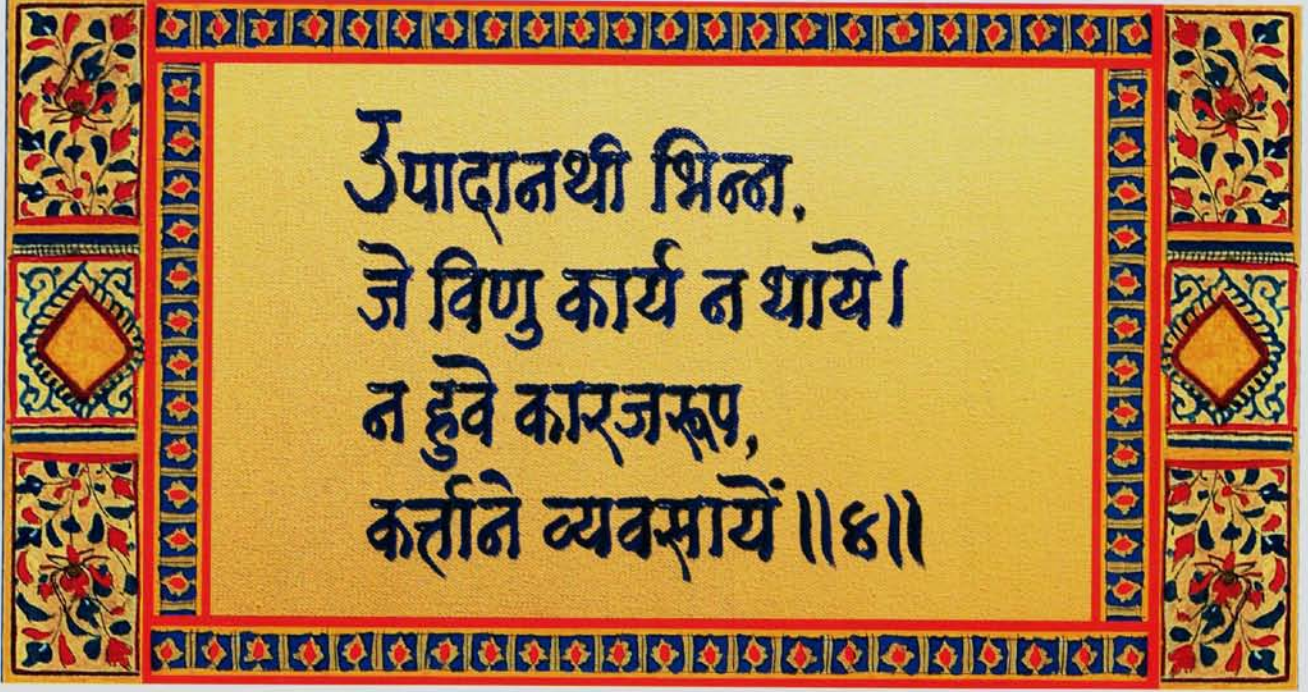 उपादानथी भिन्न,
जे विणु कार्य न थाये।
न हुवे कारजरूप,
कर्त्ताने व्यवसायें॥४॥